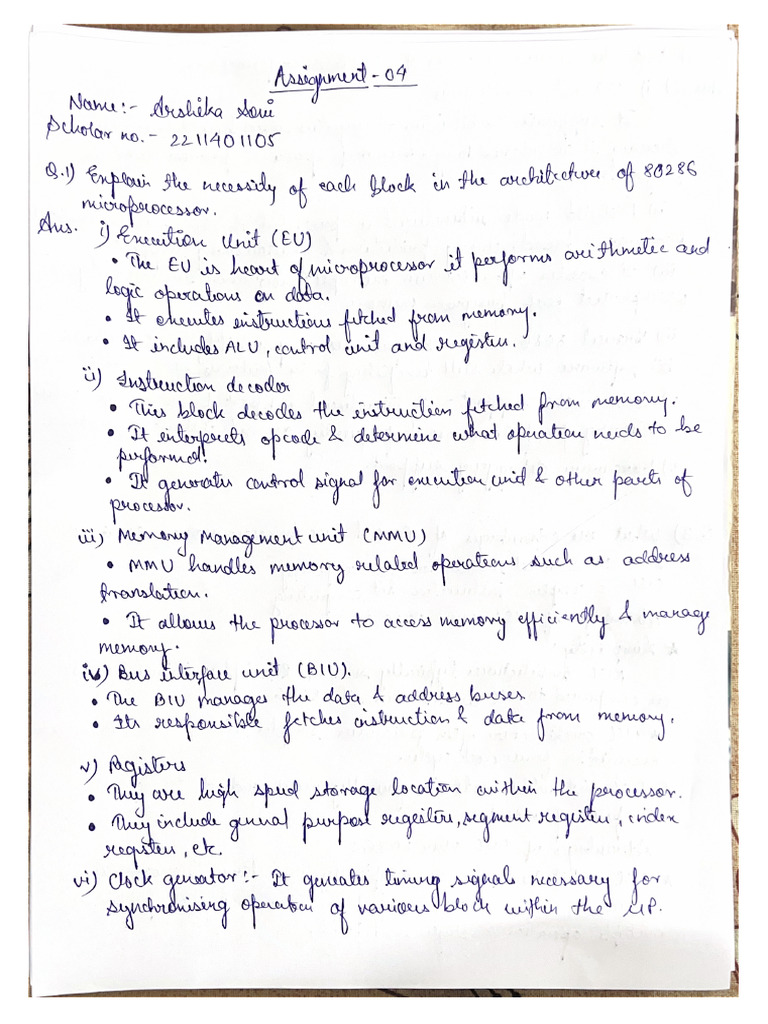 Assignment - 04
Name:- Arshika Soni
Scholar no. - 2211401105
Q.1) Explain the necessity of each block in the architecture of 80286
microprocessor.
Ans. i) Execution Unit (EU)
• The EU is heart of microprocessor it performs arithmetic and
logic operations on data.
• It executes instructions fetched from memory.
• It includes ALU, control unit and registers.
ii) Instruction decoder
• This block decodes the instruction fetched from memory.
• It interprets opcode & determine what operation needs to be
performed.
• It generates control signal for execution unit & other parts of
processor.
iii) Memory Management unit (MMU)
• MMU handles memory related operations such as address
translation.
• It allows the processor to access memory efficiently & manage
memory.
iv) Bus interface unit (BIU).
• The BIU manages the data & address buses
• Its responsible fetches instruction & data from memory.
v) Registers
• They are high speed storage location within the processor.
• They include general purpose registers, segment registers, index
registers, etc.
vi) Clock geneator:- It generates timing signals necessary for
synchronising operation of various block within the μP.